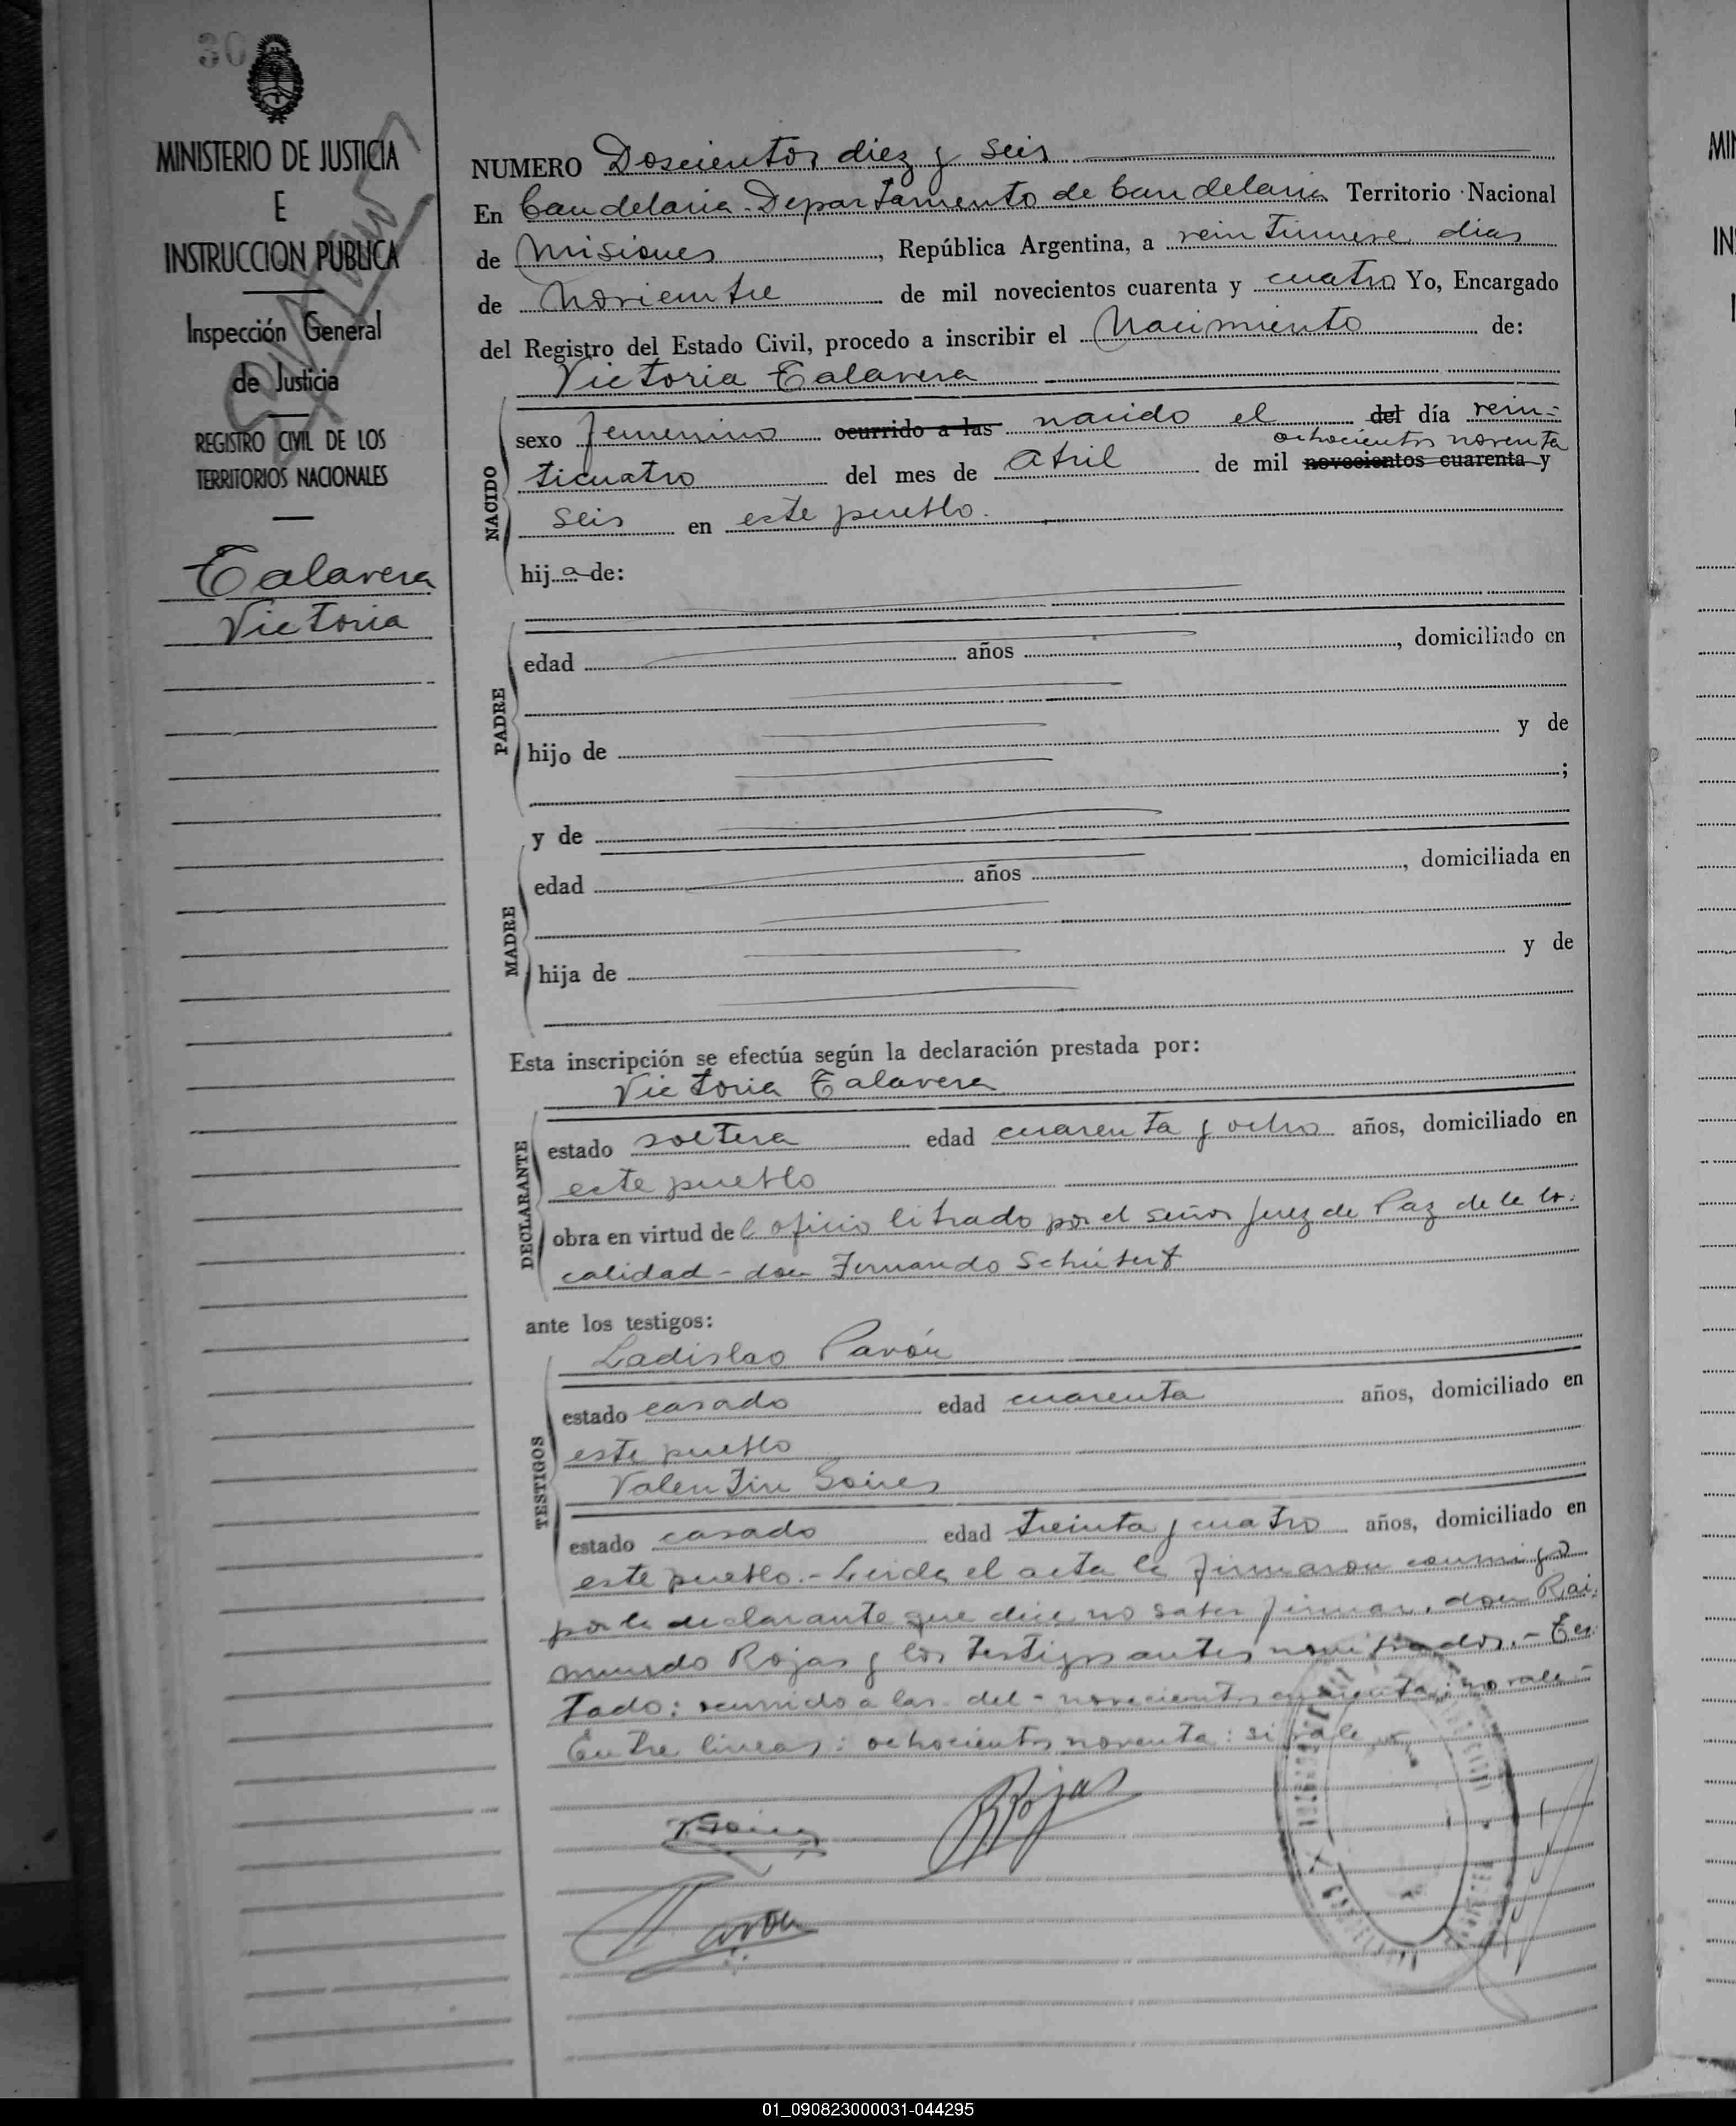 30
MINISTERIO DE JUSTICIA
E
INSTRUCCION PUBLICA
Inspección General
de Justicia
REGISTRO CIVIL DE LOS
TERRITORIOS NACIONALES
Talavera
Victoria
NUMERO Doscientos diez y seis
En Candelaria - Departamento de Candelaria Territorio Nacional
de Misiones, República Argentina, a veintinueve dias
de Noviembre de mil novecientos cuarenta y cuatro Yo, Encargado
del Registro del Estado Civil, procedo a inscribir el Nacimiento de:
Victoria Talavera
NACIDO
sexo femenino ocurrido a las nacido el del día vein-
ochocientos noventa
ticuatro del mes de Abril de mil novecientos cuarenta y
seis en este pueblo.
hija de:
PADRE
edad años, domiciliado en
hijo de y de
;
y de
MADRE
edad años, domiciliada en
hija de y de
Esta inscripción se efectúa según la declaración prestada por:
Victoria Talavera
DECLARANTE
estado soltera edad cuarenta y ocho años, domiciliado en
este pueblo
obra en virtud del oficio librado por el señor Juez de Paz de la lo-
calidad - don Fernando Schubert
ante los testigos:
Ladislao Pavón
TESTIGOS
estado casado edad cuarenta años, domiciliado en
este pueblo
Valentin Goires
estado casado edad treinta y cuatro años, domiciliado en
este pueblo.- Leida el acta la firmaron conmigo
por la declarante que dice no saber firmar, don Rai-
mundo Rojas y los testigos antes nombrados.- Tes-
tado: ocurrido a las - del - novecientos cuarenta: no vale -
Entre lineas: ochocientos noventa: si vale
RRojas
Pavón
01_090823000031-044295